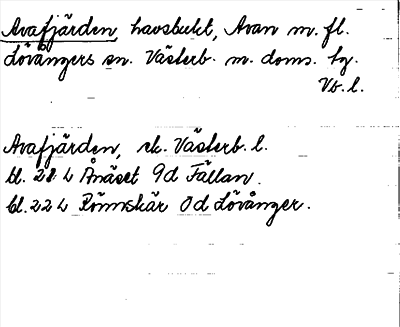 Avafjärden, havsbukt, Avan m. fl.
Lövångers sn. Västerb. m. doms. tg.
Vb. l.
Avafjärden, ek. Västerb. l.
bl. 22 L Ånäset 9d Fällan.
bl. 22 L Rönnskär 0d Lövånger.